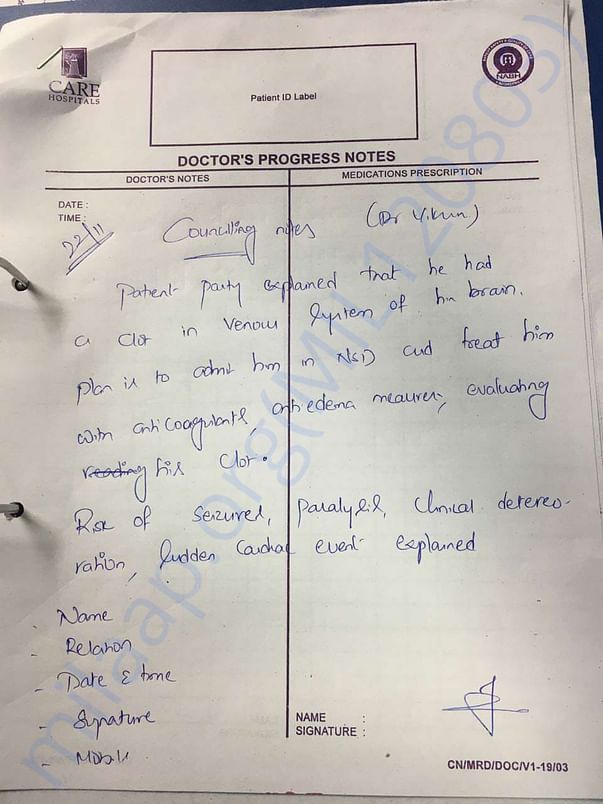 CARE
HOSPITALS
Patient ID Label
NABH
DOCTOR'S PROGRESS NOTES
DOCTOR'S NOTES
MEDICATIONS PRESCRIPTION
DATE :
TIME :
22/11
Councilling notes (Dr
Patient party explained that he had
a clot in venous system of his brain.
plan is to admit him in and treat him
with anticoagulants, anti edema measures, evaluating
reading his clot.
Risk of seizures, paralysis, clinical detereo-
ration, sudden cardiac event explained
- Name
- Relation
- Date & time
- Signature
- Mobile
NAME :
SIGNATURE :
CN/MRD/DOC/V1-19/03
milaap.org(MIL120803)